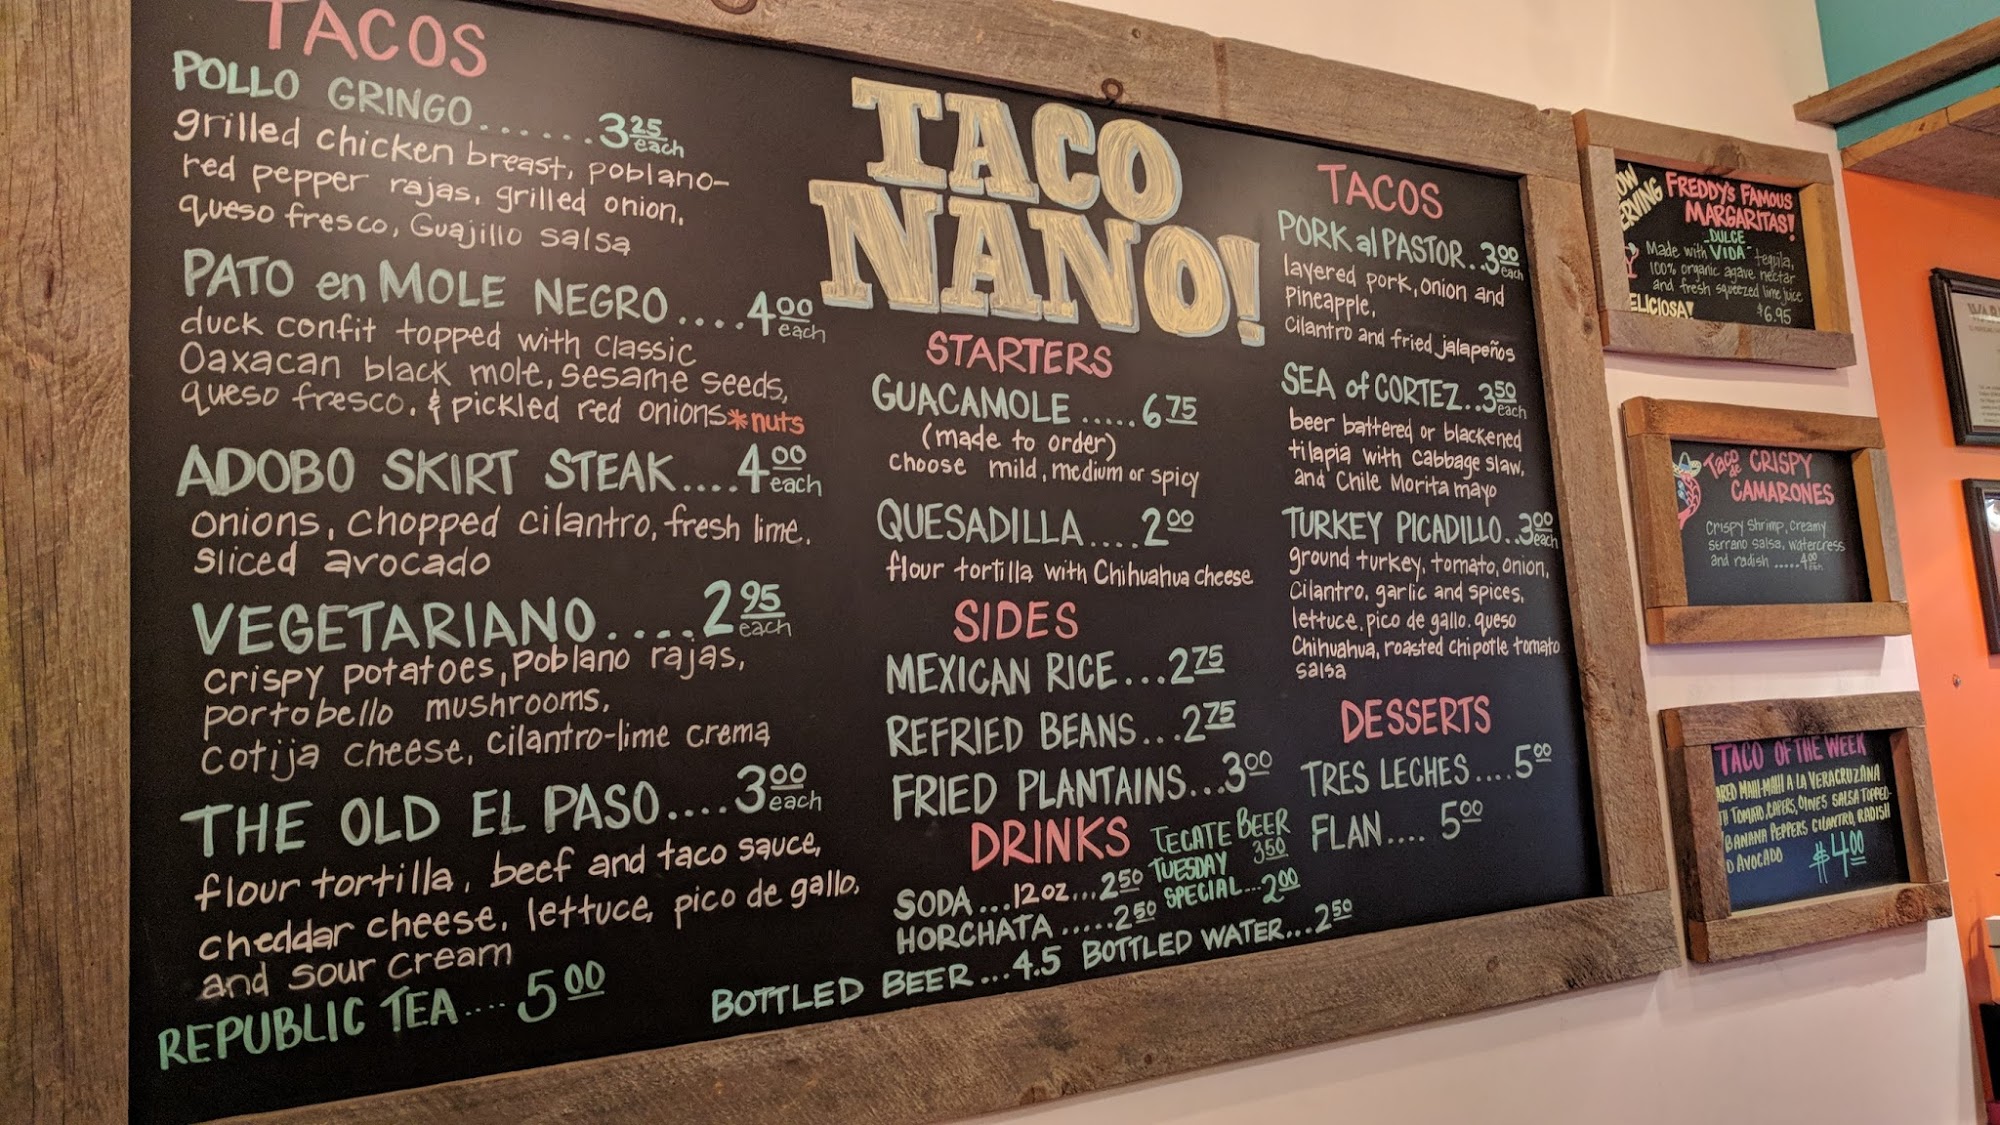 TACOS
POLLO GRINGO......3 25 each
grilled chicken breast, poblano-
red pepper rajas, grilled onion,
queso fresco, Guajillo salsa
PATO en MOLE NEGRO....4 00 each
duck confit topped with classic
Oaxacan black mole, sesame seeds,
queso fresco, & pickled red onions *nuts
ADOBO SKIRT STEAK....4 00 each
onions, chopped cilantro, fresh lime,
sliced avocado
VEGETARIANO....2 95 each
crispy potatoes, poblano rajas,
portobello mushrooms,
cotija cheese, cilantro-lime crema
THE OLD EL PASO....3 00 each
flour tortilla, beef and taco sauce,
cheddar cheese, lettuce, pico de gallo,
and sour cream
REPUBLIC TEA.... 5 00
TACO
NANO!
STARTERS
GUACAMOLE.....6 75
(made to order)
choose mild, medium or spicy
QUESADILLA....2 00
flour tortilla with Chihuahua cheese
SIDES
MEXICAN RICE...2 75
REFRIED BEANS...2 75
FRIED PLANTAINS...3 00
DRINKS
SODA...12oz...2 50
HORCHATA.....2 50
TECATE BEER
3 50
TUESDAY
SPECIAL...2 00
BOTTLED BEER...4.5 BOTTLED WATER...2 50
TACOS
PORK al PASTOR..3 00 each
layered pork, onion and
pineapple,
cilantro and fried jalapeños
SEA of CORTEZ..3 50 each
beer battered or blackened
tilapia with cabbage slaw,
and Chile Morita mayo
TURKEY PICADILLO..3 00 each
ground turkey, tomato, onion,
cilantro, garlic and spices,
lettuce, pico de gallo, queso
Chihuahua, roasted chipotle tomato
salsa
DESSERTS
TRES LECHES....5 00
FLAN.... 5 00
FREDDY'S FAMOUS
MARGARITAS!
Made with DULCE VIDA tequila,
100% organic agave nectar
and fresh squeezed lime juice
$6.95
Taco de CRISPY
CAMARONES
Crispy Shrimp, Creamy
Serrano salsa, watercress
and radish.....4 00 each
TACO OF THE WEEK
MAHI-MAHI A LA VERACRUZANA
TOMATO, CAPERS, OLIVES SALSA TOPPED
BANANA PEPPERS CILANTRO, RADISH
AVOCADO $4 00